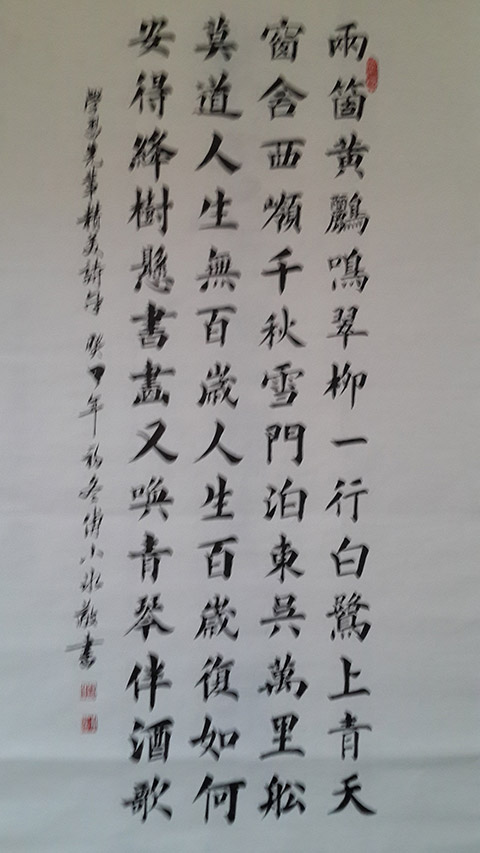 兩箇黃鸝鳴翠柳一行白鷺上青天
窗含西嶺千秋雪門泊東吳萬里舩
莫道人生無百歲人生百歲復如何
安得絳樹懸書畫又喚青琴伴酒歌
精美詩 年初冬 小 敬書